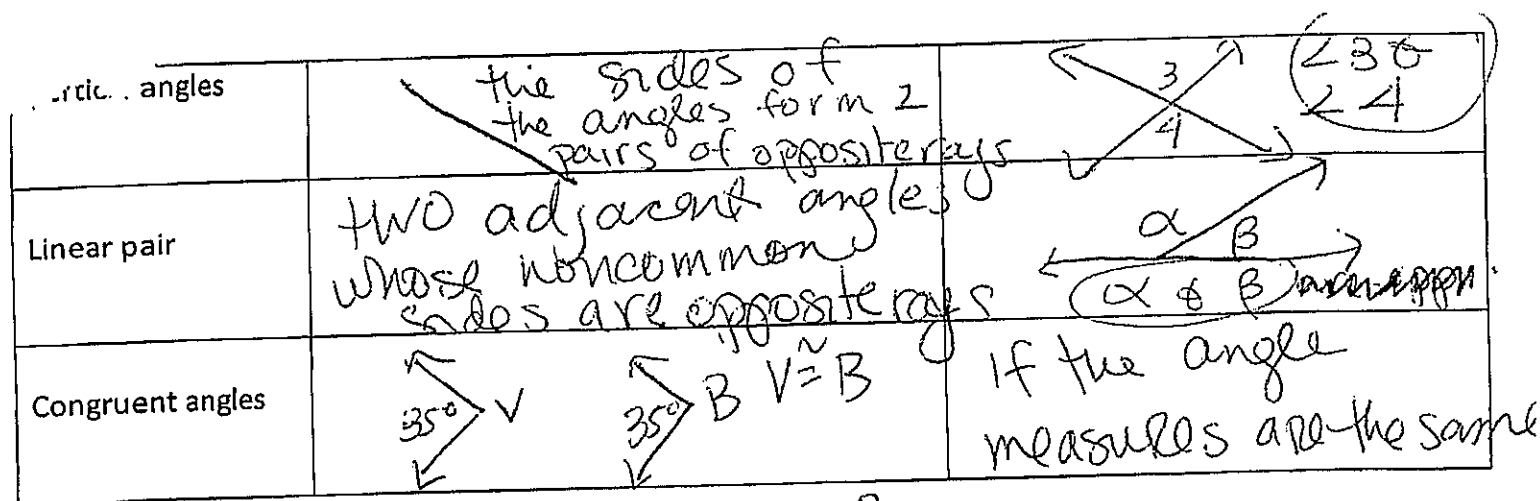 angles
the sides of
the angles form 2
pairs of opposite rays
3
4
∠3 &
∠4
Linear pair
two adjacent angles
whose noncommon
sides are opposite rays
α
β
α & β
Congruent angles
35° V
35° B
V ≅ B
if the angle
measures are the same